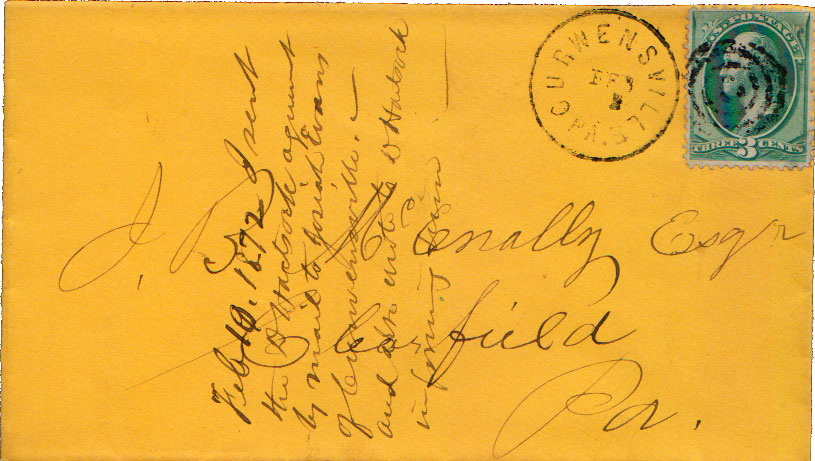 CURWENSVILLE
FEB
PA.
U.S. POSTAGE
THREE 3 CENTS
J. B. McEnally Esqr
Clearfield
Pa.
Feb 10. 1872 I sent
the D Hartsock agreement
by mail to Josiah Evans
of Curwensville. —
and also wrote to D Hartsock
informing him